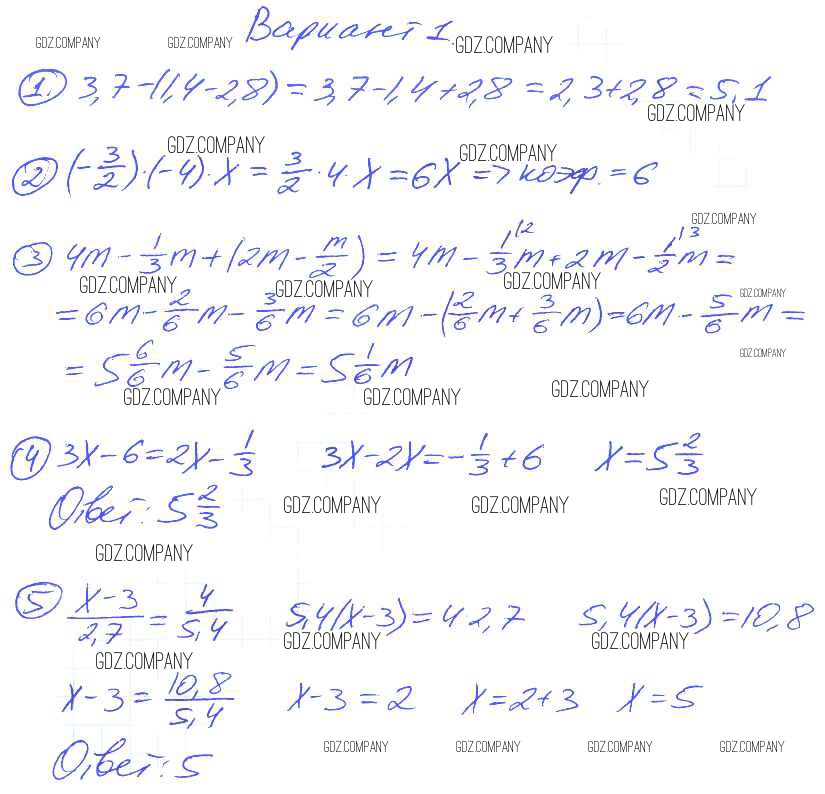 Вариант 1.
GDZ.COMPANY GDZ.COMPANY GDZ.COMPANY
1. 3,7-(1,4-2,8)=3,7-1,4+2,8=2,3+2,8=5,1
GDZ.COMPANY
GDZ.COMPANY GDZ.COMPANY
2 (-3/2)·(-4)·x=3/2·4·x=6x=>коэф.=6
GDZ.COMPANY
3 4m-1/3m+(2m-m/2)=4m-1/3|2m+2m-1/2|3m=
GDZ.COMPANY GDZ.COMPANY GDZ.COMPANY
GDZ.COMPANY
=6m-2/6m-3/6m=6m-(2/6m+3/6m)=6m-5/6m=
GDZ.COMPANY
=5 6/6m-5/6m=5 1/6m
GDZ.COMPANY GDZ.COMPANY GDZ.COMPANY
4 3x-6=2x-1/3 3x-2x=-1/3+6 x=5 2/3
Ответ: 5 2/3
GDZ.COMPANY GDZ.COMPANY GDZ.COMPANY
GDZ.COMPANY
5 x-3/2,7=4/5,4 5,4(x-3)=4·2,7 5,4(x-3)=10,8
GDZ.COMPANY GDZ.COMPANY
GDZ.COMPANY
x-3=10,8/5,4 x-3=2 x=2+3 x=5
GDZ.COMPANY GDZ.COMPANY GDZ.COMPANY GDZ.COMPANY
Ответ: 5